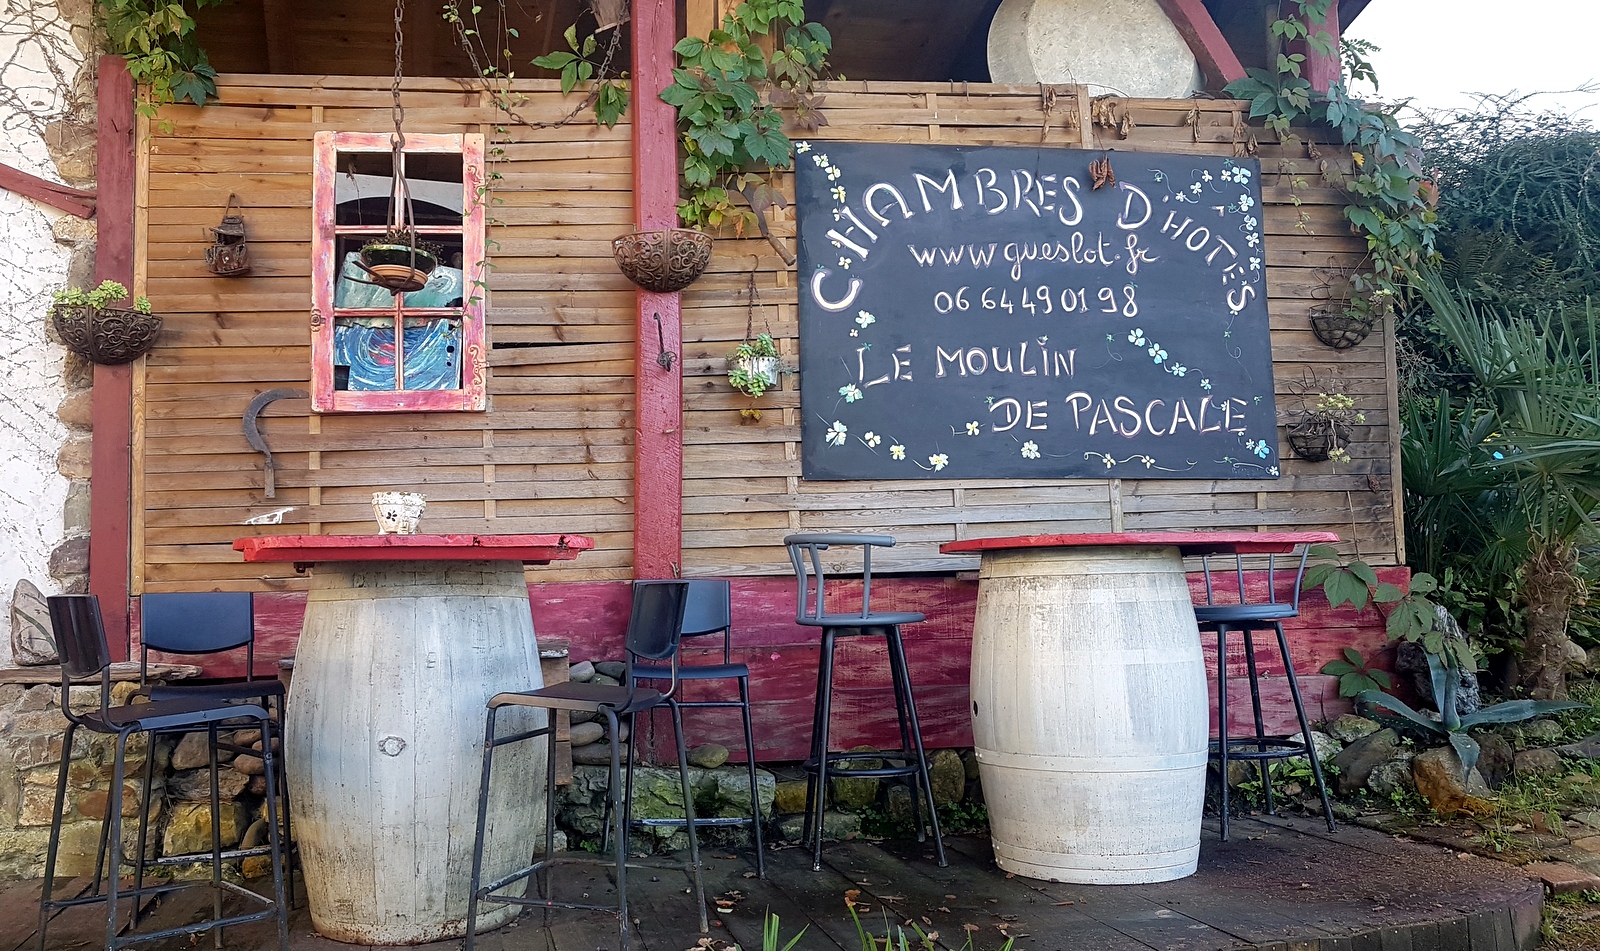 CHAMBRES D'HÔTES
www.gueslot.fr
06 64 49 01 98
LE MOULIN
DE PASCALE